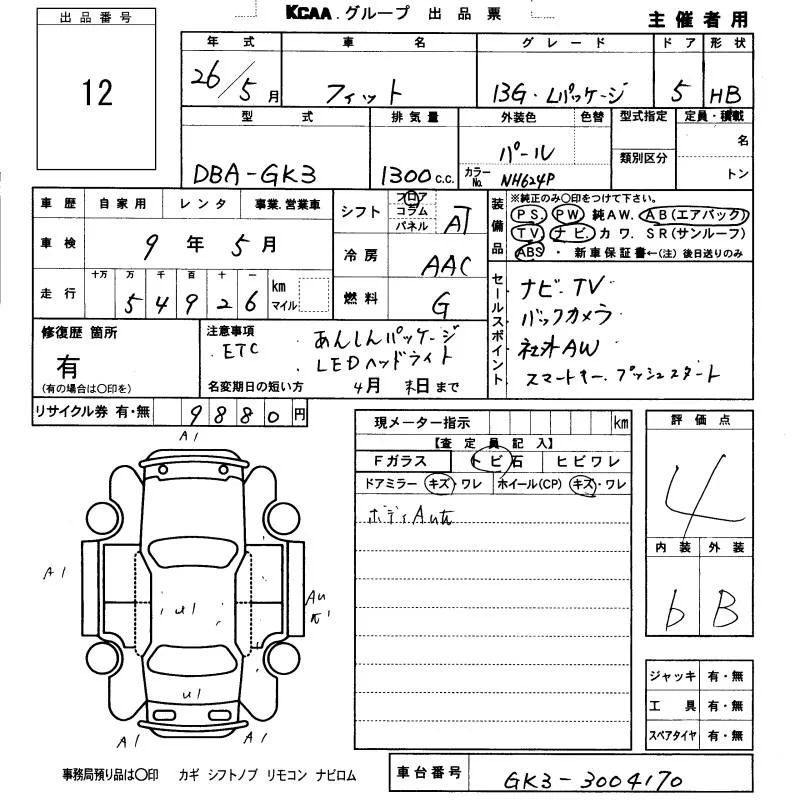 KCAA.グループ 出品票
主催者用
出品番号
12
年式 車名 グレード ドア 形状
26/5月 フィット 13G・Lパッケージ 5 HB
型式 排気量 外装色 色替 型式指定 定員・積載
DBA-GK3 1300 c.c. パール 名
カラーNo. NH624P 類別区分 トン
車歴 自家用 レンタ 事業.営業車
車検 9年5月
走行 十万 万 千 百 十 一 km マイル
54926
シフト フロア コラム パネル AT
冷房 AAC
燃料 G
装備品
※純正のみ○印をつけて下さい。
PS PW 純AW. AB(エアバック)
TV ナビ カワ. SR(サンルーフ)
ABS ・ 新車保証書←(注)後日送りのみ
セールスポイント
ナビ.TV
バックカメラ
社外AW
スマートキー.プッシュスタート
修復歴 箇所
有
(有の場合は○印を)
注意事項
ETC
あんしんパッケージ
LEDヘッドライト
名変期日の短い方 4月 末日まで
リサイクル券 有・無 9880円
現メーター指示 km
【査定員記入】
Fガラス トビ石 ヒビワレ
ドアミラー キズ・ワレ ホイール(CP) キズ・ワレ
ボディAU有
評価点
4
内装 外装
b B
A1
A1
AU
U1
U1
A1
A1
ジャッキ 有・無
工具 有・無
スペアタイヤ 有・無
事務局預り品は○印 カギ シフトノブ リモコン ナビロム
車台番号 GK3-3004170